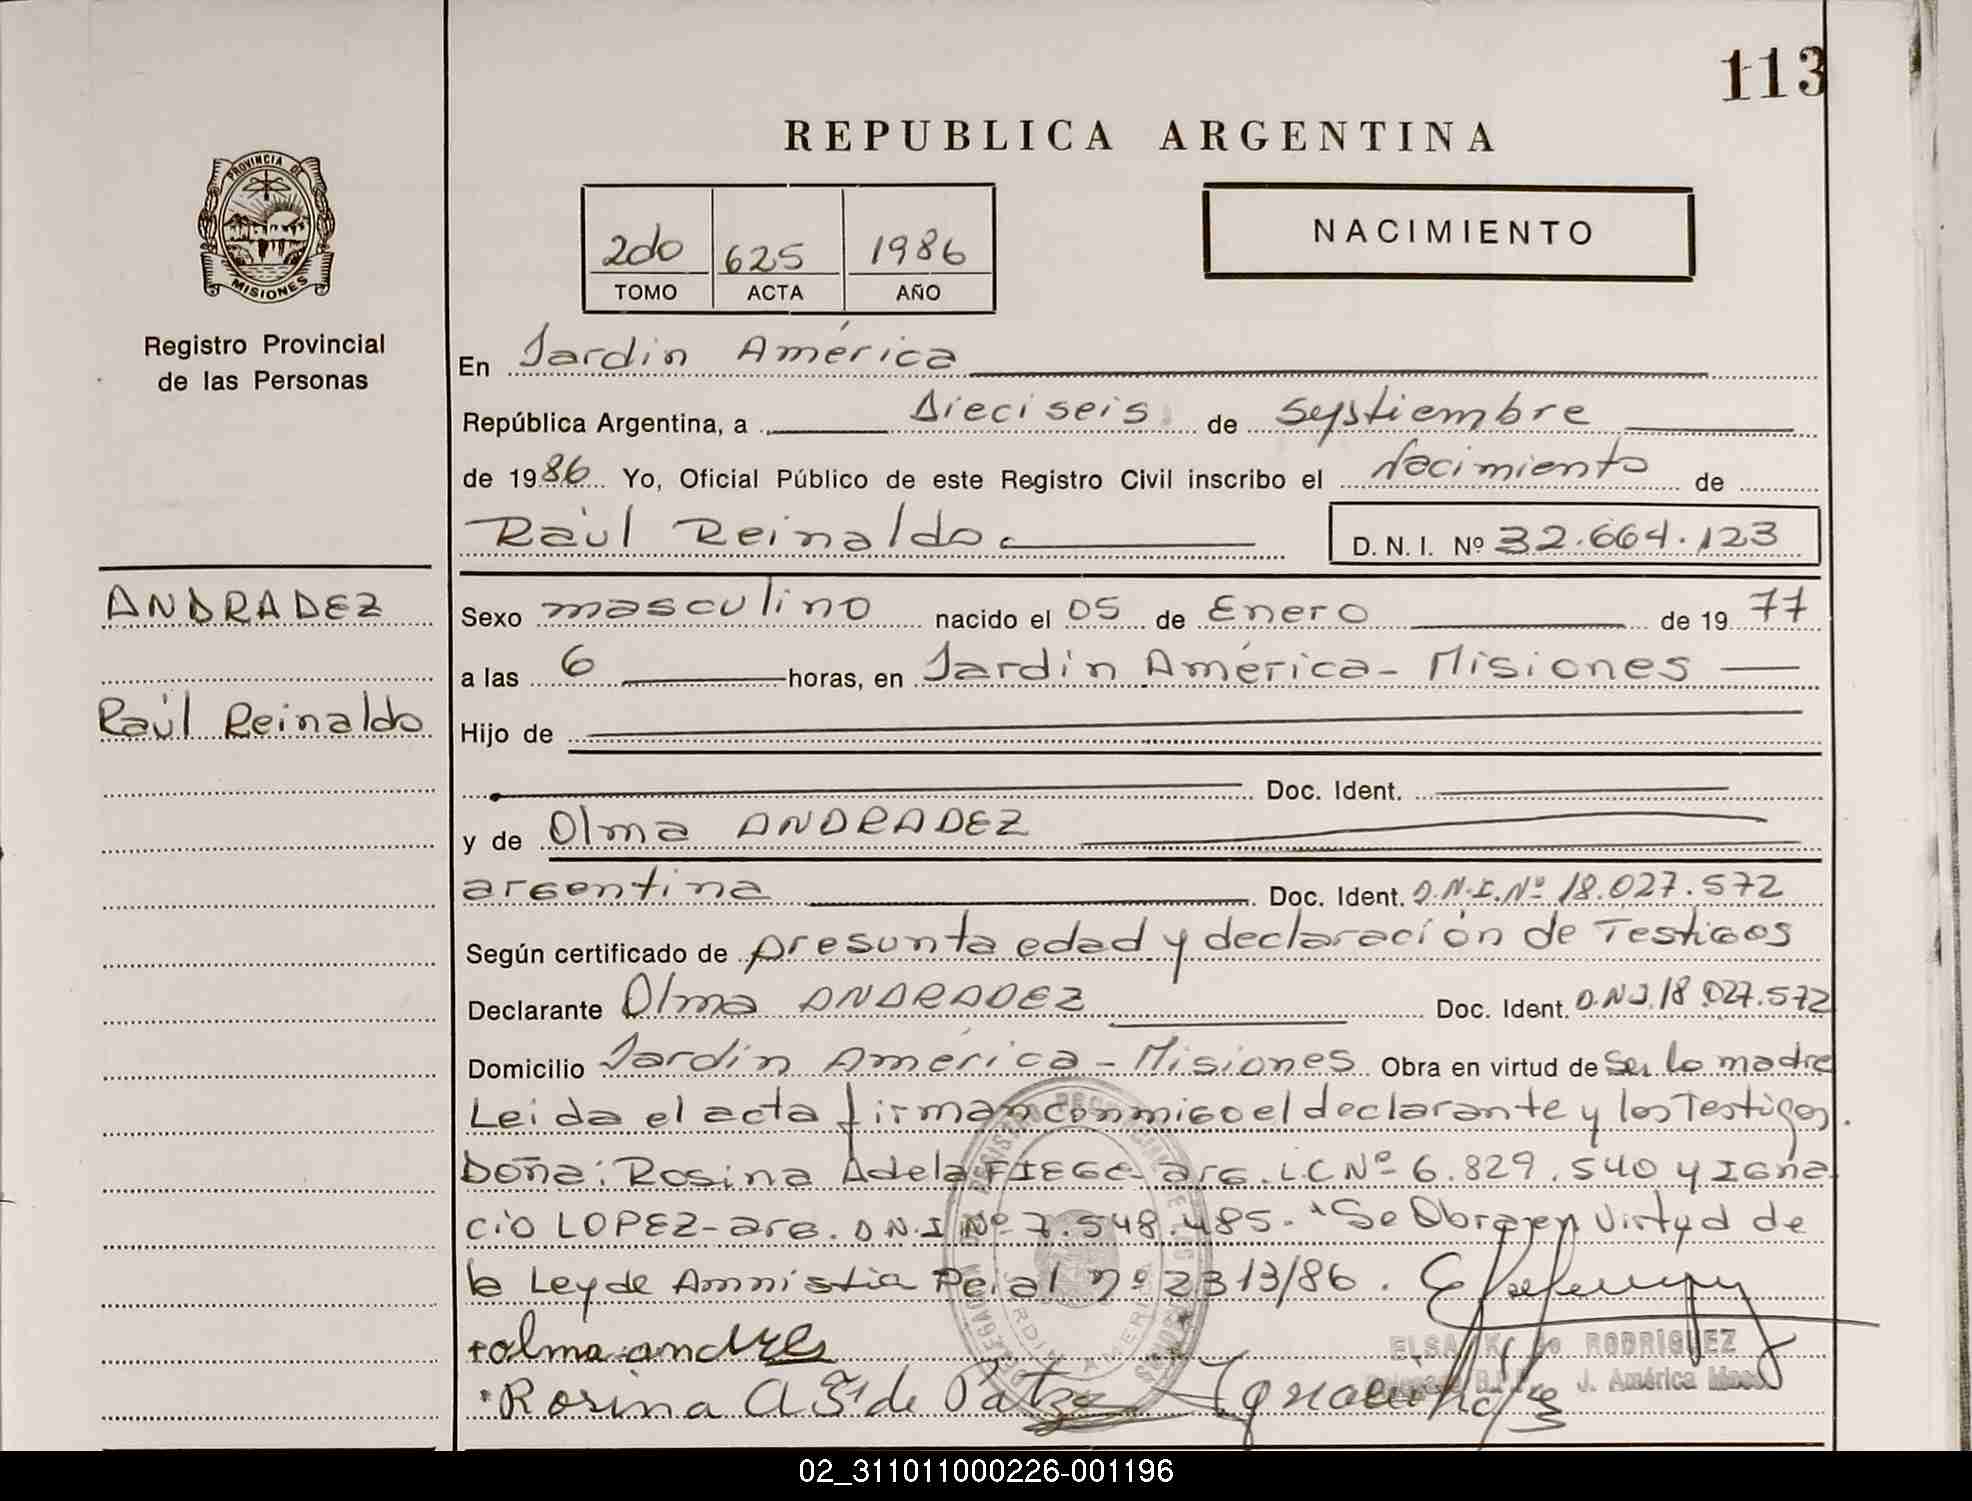 113
REPUBLICA ARGENTINA
PROVINCIA DE
MISIONES
2do 625 1986
TOMO ACTA AÑO
NACIMIENTO
Registro Provincial
de las Personas
En Jardin América
República Argentina, a Dieciseis de Septiembre
de 1986 Yo, Oficial Público de este Registro Civil inscribo el Nacimiento de
Raúl Reinaldo
D. N. I. Nº 32.664.123
ANDRADEZ
Raúl Reinaldo
Sexo masculino nacido el 05 de Enero de 1977
a las 6 horas, en Jardín América - Misiones
Hijo de
Doc. Ident.
y de Olma ANDRADEZ
argentina Doc. Ident. D.N.I. Nº 18.027.572
Según certificado de presunta edad y declaración de Testigos
Declarante Olma ANDRADEZ Doc. Ident. D.N.I. 18.027.572
Domicilio Jardín América - Misiones Obra en virtud de Ser la madre
Leida el acta firman conmigo el declarante y los Testigos
Doña: Rosina Adela FIEGE arg. L.C Nº 6.829.540 y Igna
cio LOPEZ - arg. D.N.I Nº 7.548.485. "Se Obra en Virtud de
la Ley de Amnistia Penal nº 2313/86.
olma andre
ELSA K. de RODRIGUEZ
J. América
Rosina A F. de Patze
02_311011000226-001196